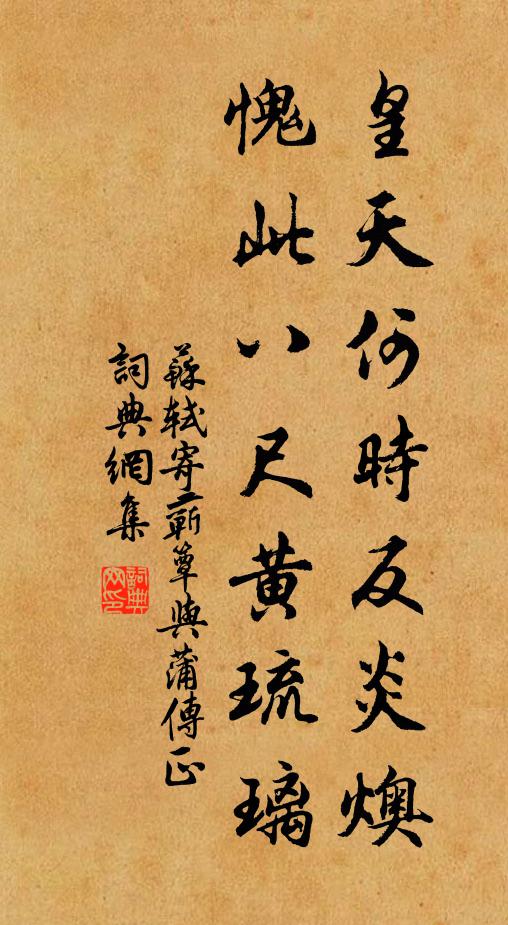 皇天何時反炎燠
愧此八尺黃琉璃
蘇軾寄蘄簟與蒲傳正
詞典網集
詞典
网印